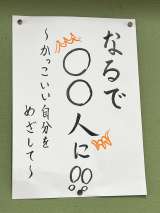 なるで
〇〇人に!!
～かっこいい自分を
めざして～